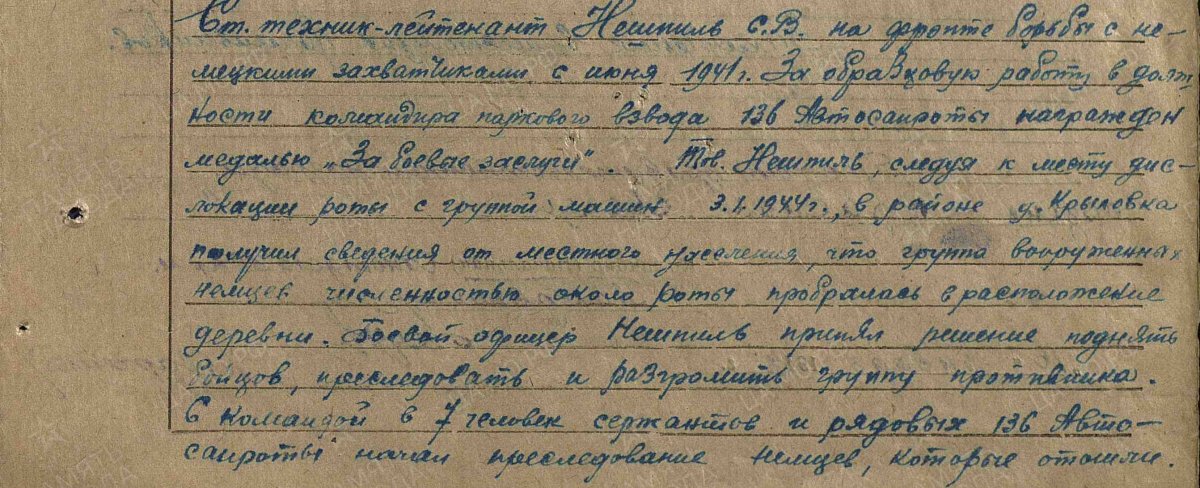 Ст. техник-лейтенант Нешпиль С.В. на фронте борьбы с не-
мецкими захватчиками с июня 1941г. За образцовую работу в долж-
ности командира паркового взвода 136 Автосанроты награжден
медалью „За боевые заслуги". Тов. Нешпиль, следуя к месту дис-
локации роты с группой машин 3.1.1944г., в районе д. Крыловка
получил сведения от местного населения, что группа вооруженных
немцев численностью около роты пробралась в расположение
деревни. Боевой офицер Нешпиль принял решение поднять
бойцов, преследовать и разгромить группу противника.
С командой в 7 человек сержантов и рядовых 136 Авто-
санроты начал преследование немцев, которые отошли.